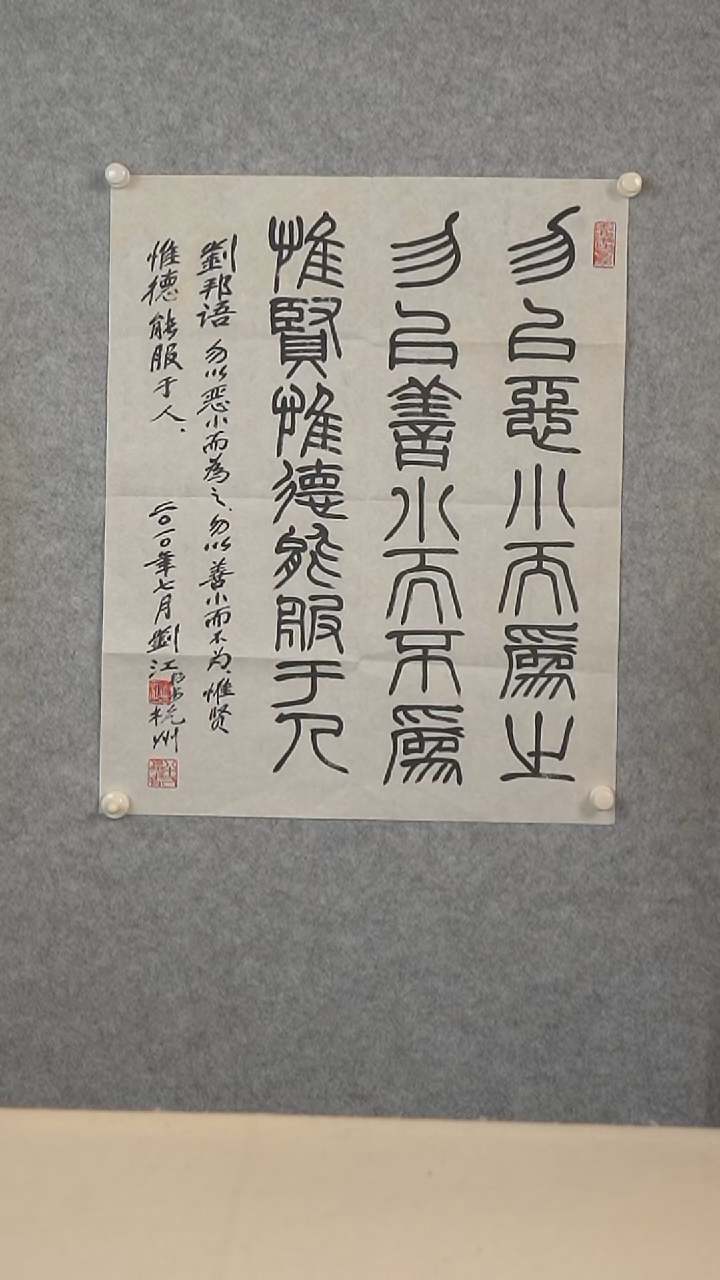 勿㠯惡小而爲之
勿㠯善小而不爲
惟賢惟德能服于人
劉邦语 勿以恶小而為之、勿以善小而不为、惟贤
惟德能服于人、
二〇一〇年七月劉江 杭州